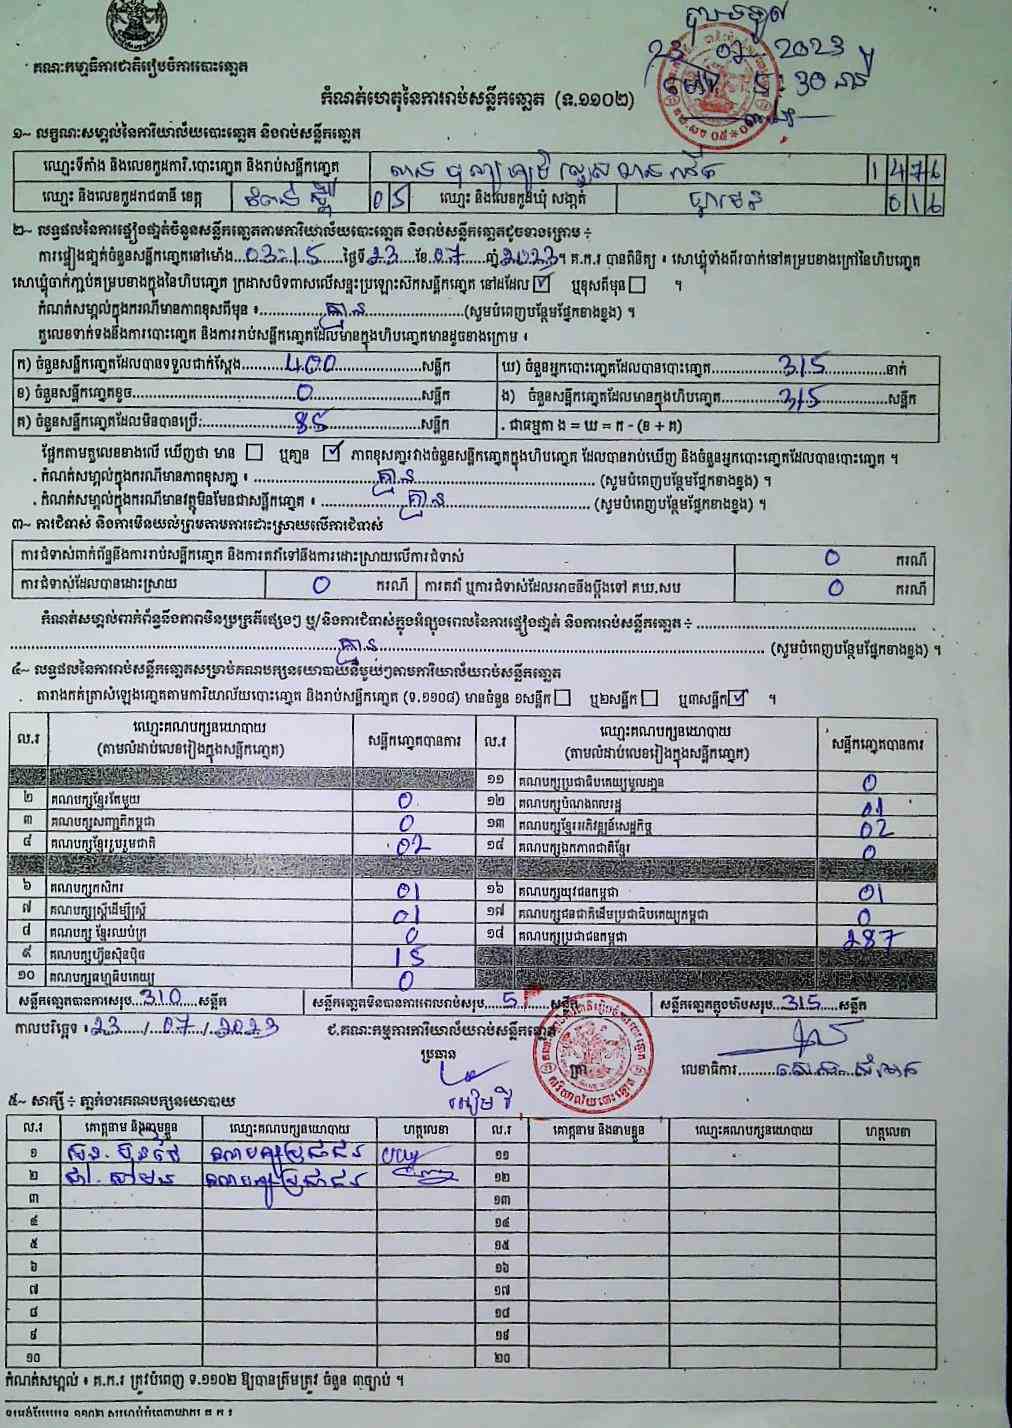 23 07 2023
5:30
គណៈកម្មាធិការជាតិរៀបចំការបោះឆ្នោត
កំណត់ហេតុនៃការរាប់សន្លឹកឆ្នោត (ទ.១១០២)
១~ លក្ខណៈសម្គាល់នៃការិយាល័យបោះឆ្នោត និងរាប់សន្លឹកឆ្នោត
ឈ្មោះទីតាំង និងលេខកូដការិ.បោះឆ្នោត និងរាប់សន្លឹកឆ្នោត 1476
ឈ្មោះ និងលេខកូដរាជធានី ខេត្ត កំពង់ស្ពឺ 05 ឈ្មោះ និងលេខកូដឃុំ សង្កាត់ 016
២~ លទ្ធផលនៃការផ្ទៀងផ្ទាត់ចំនួនសន្លឹកឆ្នោតតាមការិយាល័យបោះឆ្នោត និងរាប់សន្លឹកឆ្នោតដូចខាងក្រោម ៖
ការផ្ទៀងផ្ទាត់ចំនួនសន្លឹកឆ្នោតនៅម៉ោង 03:15 ថ្ងៃទី 23 ខែ 07 ឆ្នាំ 2023 ។ គ.ក.រ បានពិនិត្យ ៖ សោឃ្មុំទាំងពីរចាក់នៅគម្របខាងក្រៅនៃហិបឆ្នោត
សោឃ្មុំចាក់ភ្ជាប់គម្របខាងក្នុងនៃហិបឆ្នោត ក្រដាសបិទពាសលើសន្ទះប្រឡោះស៊កសន្លឹកឆ្នោត នៅដដែល ☑ ឬខុសពីមុន ☐ ។
កំណត់សម្គាល់ក្នុងករណីមានភាពខុសពីមុន ៖ គ្មាន (សូមបំពេញបន្ថែមផ្នែកខាងខ្នង) ។
តួលេខទាក់ទងនឹងការបោះឆ្នោត និងការរាប់សន្លឹកឆ្នោតដែលមានក្នុងហិបឆ្នោតមានដូចខាងក្រោម ៖
ក) ចំនួនសន្លឹកឆ្នោតដែលបានទទួលជាក់ស្តែង 400 សន្លឹក ឃ) ចំនួនអ្នកបោះឆ្នោតដែលបានបោះឆ្នោត 315 នាក់
ខ) ចំនួនសន្លឹកឆ្នោតខូច 0 សន្លឹក ង) ចំនួនសន្លឹកឆ្នោតដែលមានក្នុងហិបឆ្នោត 315 សន្លឹក
គ) ចំនួនសន្លឹកឆ្នោតដែលមិនបានប្រើ: 85 សន្លឹក . ជាធម្មតា ង = ឃ = ក - (ខ + គ)
ផ្អែកតាមតួលេខខាងលើ ឃើញថា មាន ☐ ឬគ្មាន ☑ ភាពខុសគ្នារវាងចំនួនសន្លឹកឆ្នោតក្នុងហិបឆ្នោត ដែលបានរាប់ឃើញ និងចំនួនអ្នកបោះឆ្នោតដែលបានបោះឆ្នោត ។
. កំណត់សម្គាល់ក្នុងករណីមានភាពខុសគ្នា ៖ គ្មាន (សូមបំពេញបន្ថែមផ្នែកខាងខ្នង) ។
. កំណត់សម្គាល់ក្នុងករណីមានវត្ថុមិនមែនជាសន្លឹកឆ្នោត ៖ គ្មាន (សូមបំពេញបន្ថែមផ្នែកខាងខ្នង) ។
៣~ ការជំទាស់ និងការមិនយល់ព្រមតាមការដោះស្រាយលើការជំទាស់
ការជំទាស់ពាក់ព័ន្ធនឹងការរាប់សន្លឹកឆ្នោត និងការតវ៉ាទៅនឹងការដោះស្រាយលើការជំទាស់ 0 ករណី
ការជំទាស់ដែលបានដោះស្រាយ 0 ករណី ការតវ៉ា ឬការជំទាស់ដែលអាចនឹងប្តឹងទៅ គឃ.សប 0 ករណី
កំណត់សម្គាល់ពាក់ព័ន្ធនឹងភាពមិនប្រក្រតីផ្សេងៗ ឬ/និងការជំទាស់ក្នុងអំឡុងពេលនៃការផ្ទៀងផ្ទាត់ និងការរាប់សន្លឹកឆ្នោត ៖
គ្មាន (សូមបំពេញបន្ថែមផ្នែកខាងខ្នង) ។
៤~ លទ្ធផលនៃការរាប់សន្លឹកឆ្នោតសម្រាប់គណបក្សនយោបាយនីមួយៗតាមការិយាល័យរាប់សន្លឹកឆ្នោត
តារាងកត់ត្រាសំឡេងឆ្នោតតាមការិយាល័យបោះឆ្នោត និងរាប់សន្លឹកឆ្នោត (ទ.១១០៨) មានចំនួន ១សន្លឹក ☐ ឬ២សន្លឹក ☐ ឬ៣សន្លឹក ☑ ។
ល.រ ឈ្មោះគណបក្សនយោបាយ (តាមលំដាប់លេខរៀងក្នុងសន្លឹកឆ្នោត) សន្លឹកឆ្នោតបានការ ល.រ ឈ្មោះគណបក្សនយោបាយ (តាមលំដាប់លេខរៀងក្នុងសន្លឹកឆ្នោត) សន្លឹកឆ្នោតបានការ
១១ គណបក្សប្រជាធិបតេយ្យមូលដ្ឋាន 0
២ គណបក្សខ្មែរតែមួយ 0 ១២ គណបក្សបំណងពលរដ្ឋ 01
៣ គណបក្សសញ្ជាតិកម្ពុជា 0 ១៣ គណបក្សខ្មែរអភិវឌ្ឍន៍សេដ្ឋកិច្ច 02
៤ គណបក្សខ្មែររួបរួមជាតិ 02 ១៤ គណបក្សឯកភាពជាតិខ្មែរ 0
៦ គណបក្សកសិករ 01 ១៦ គណបក្សយុវជនកម្ពុជា 01
៧ គណបក្សស្ត្រីដើម្បីស្ត្រី 01 ១៧ គណបក្សជនជាតិដើមប្រជាធិបតេយ្យកម្ពុជា 0
៨ គណបក្ស ខ្មែរឈប់ក្រ 0 ១៨ គណបក្សប្រជាជនកម្ពុជា 287
៩ គណបក្សហ្វ៊ុនស៊ិនប៉ិច 15
១០ គណបក្សធម្មាធិបតេយ្យ 0
សន្លឹកឆ្នោតបានការសរុប 310 សន្លឹក សន្លឹកឆ្នោតមិនបានការពេលរាប់សរុប 5 សន្លឹក សន្លឹកឆ្នោតក្នុងហិបសរុប 315 សន្លឹក
កាលបរិច្ឆេទ ៖ 23 / 07 / 2023 ជ.គណៈកម្មការការិយាល័យរាប់សន្លឹកឆ្នោត
ប្រធាន ត្រា លេខាធិការ
៥~ សាក្សី ៖ ភ្នាក់ងារគណបក្សនយោបាយ
ល.រ គោត្តនាម និងនាមខ្លួន ឈ្មោះគណបក្សនយោបាយ ហត្ថលេខា ល.រ គោត្តនាម និងនាមខ្លួន ឈ្មោះគណបក្សនយោបាយ ហត្ថលេខា
១ គណបក្សប្រជាជន ១១
២ គណបក្សប្រជាជន ១២
៣ ១៣
៤ ១៤
៥ ១៥
៦ ១៦
៧ ១៧
៨ ១៨
៩ ១៩
១០ ២០
កំណត់សម្គាល់ ៖ គ.ក.រ ត្រូវបំពេញ ទ.១១០២ ឱ្យបានត្រឹមត្រូវ ចំនួន ៣ច្បាប់ ។